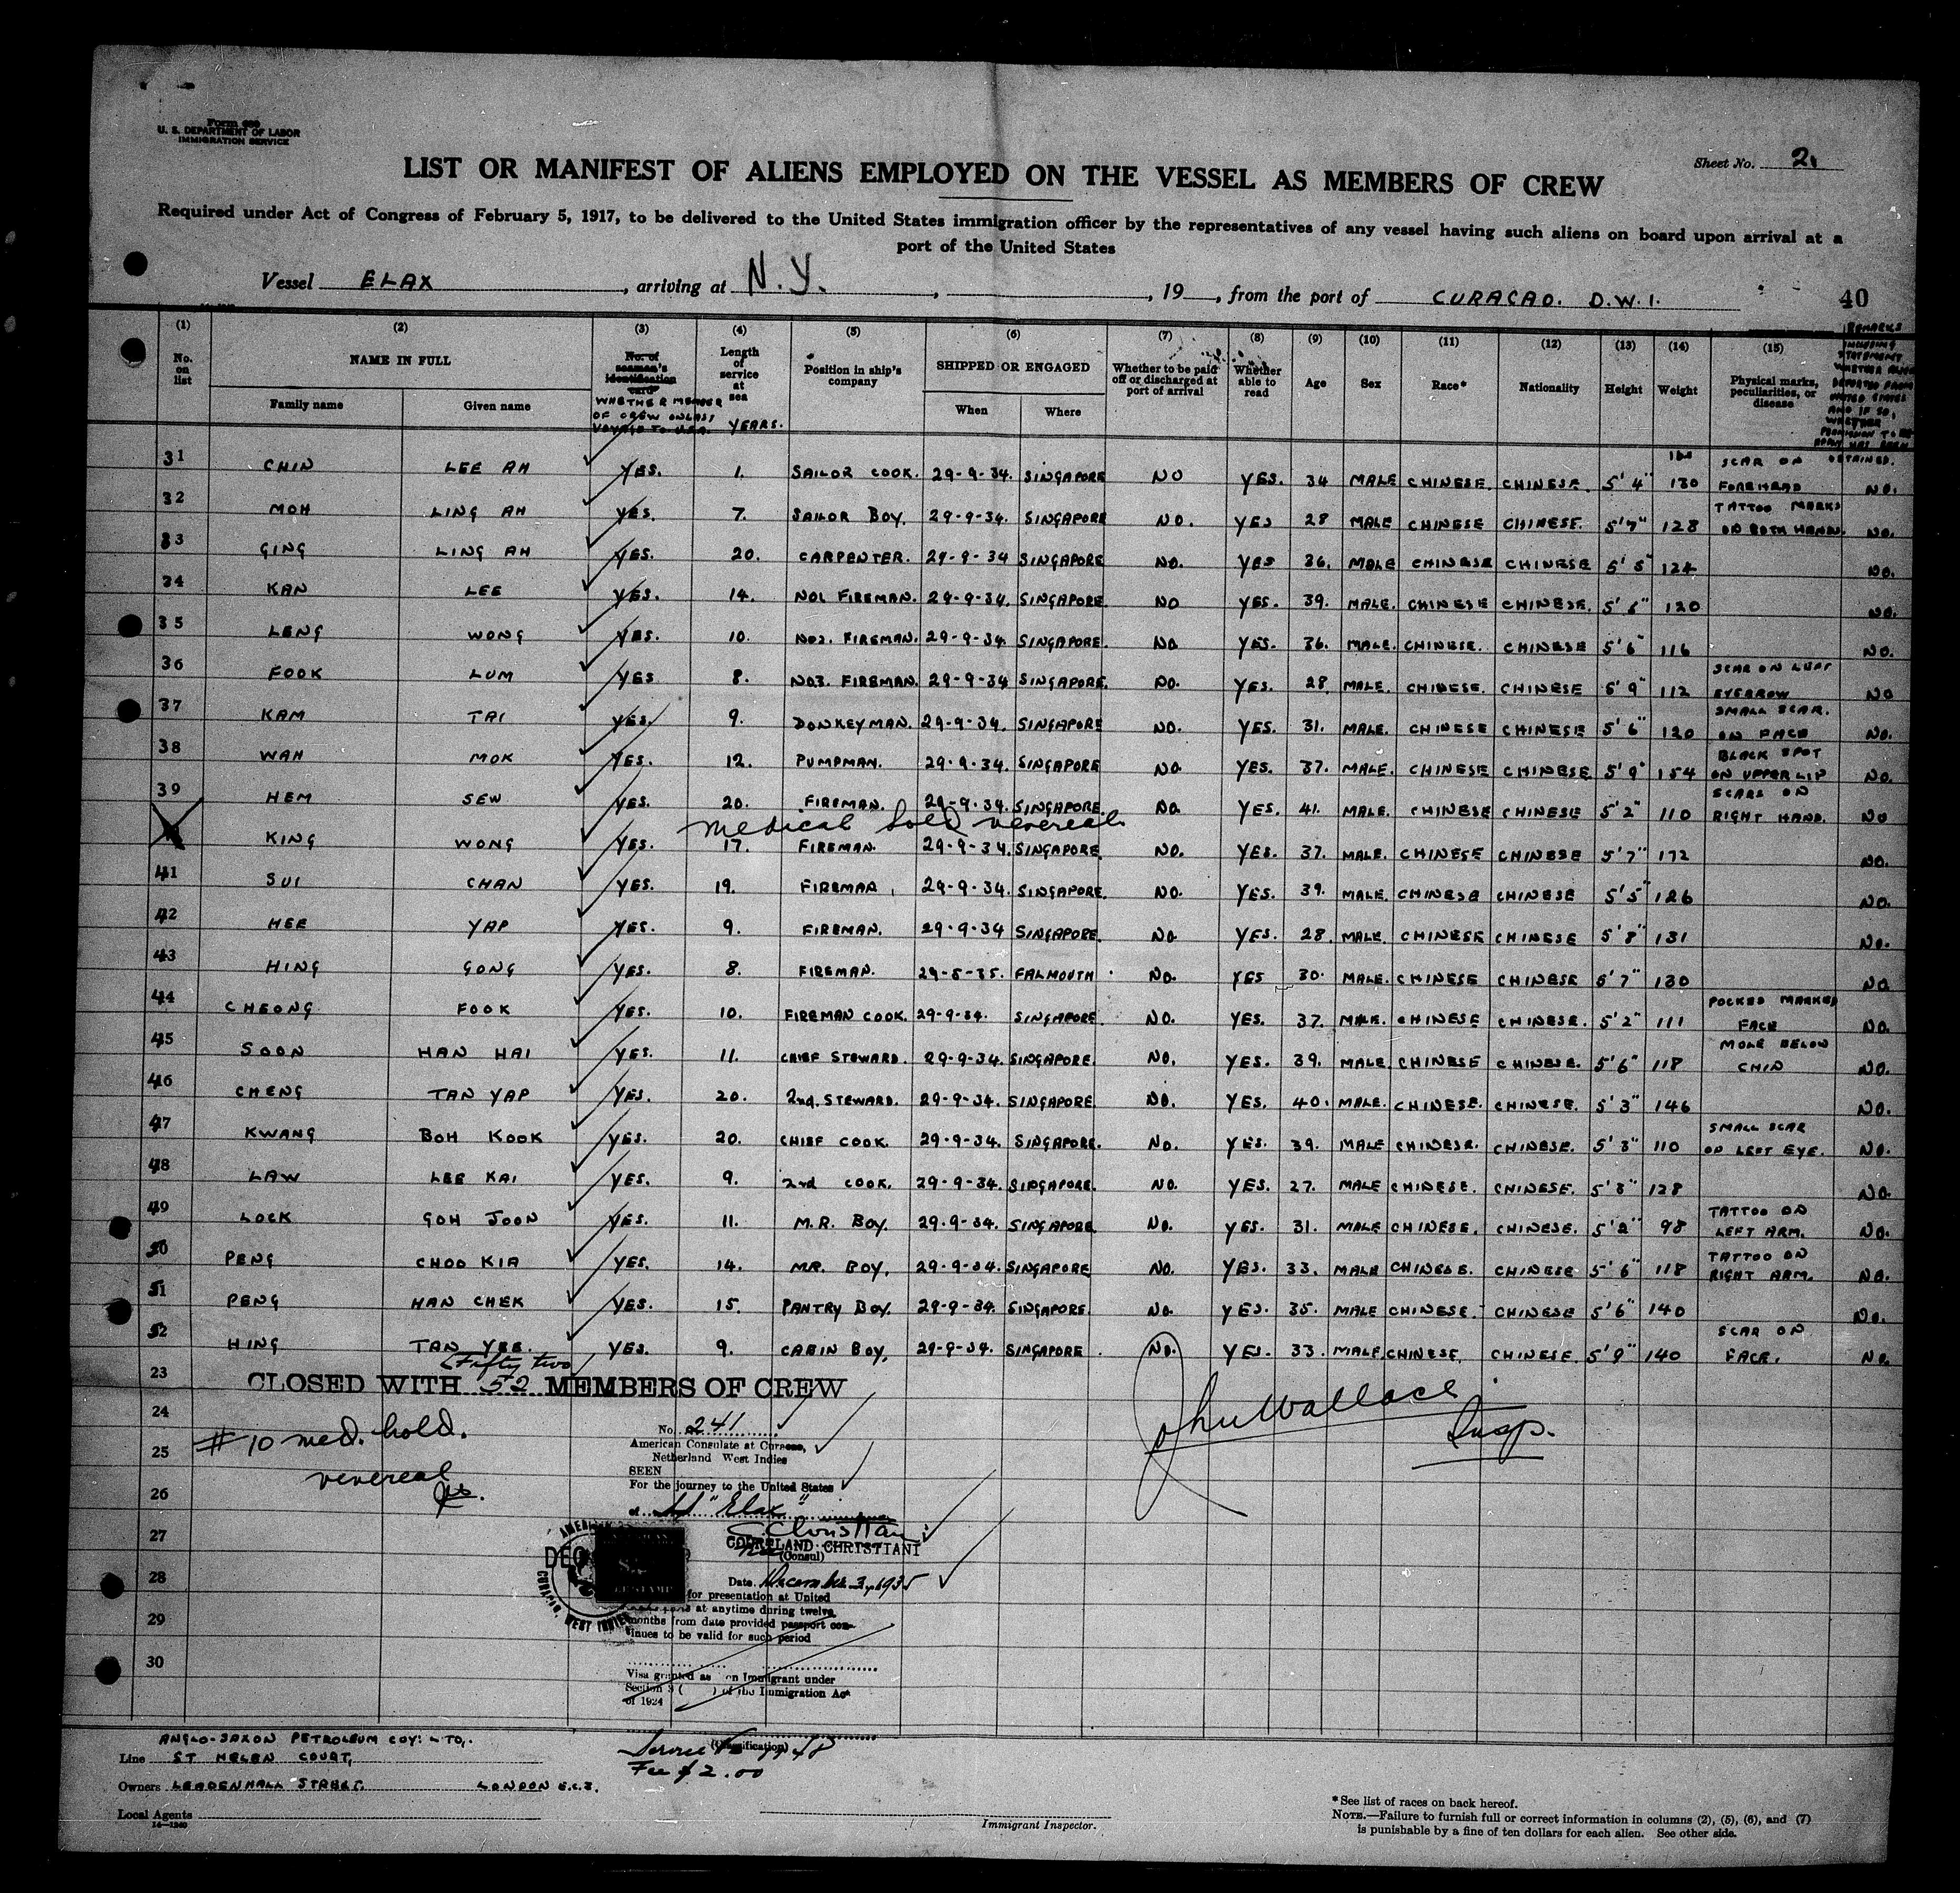 Form 680
U. S. DEPARTMENT OF LABOR
IMMIGRATION SERVICE
Sheet No. 2.
LIST OR MANIFEST OF ALIENS EMPLOYED ON THE VESSEL AS MEMBERS OF CREW
Required under Act of Congress of February 5, 1917, to be delivered to the United States immigration officer by the representatives of any vessel having such aliens on board upon arrival at a
port of the United States
Vessel ELAX, arriving at N.Y., , 19 , from the port of CURACAO. D.W.I.
40
(1) (2) (3) (4) (5) (6) (7) (8) (9) (10) (11) (12) (13) (14) (15)
No. on list
NAME IN FULL
Family name Given name
No. of seaman's identification card
WHETHER MEMBER OF CREW ON LAST VOYAGE TO U.S.A.
Length of service at sea
YEARS.
Position in ship's company
SHIPPED OR ENGAGED
When Where
Whether to be paid off or discharged at port of arrival
Whether able to read
Age Sex Race* Nationality Height Weight
Physical marks, peculiarities, or disease
REMARKS INCLUDING STATEMENT WHETHER DEPORTED FROM UNITED STATES AND IF SO, WHETHER PERMISSION TO APPLY HAS BEEN OBTAINED.
31 CHIN LEE AH YES. 1. SAILOR COOK. 29-9-34. SINGAPORE NO YES. 34 MALE CHINESE. CHINESE. 5'4" 130 SCAR ON FOREHEAD NO.
32 MOH LING AH YES. 7. SAILOR BOY. 29-9-34. SINGAPORE NO. YES 28 MALE CHINESE CHINESE. 5'7" 128 TATTOO MARKS ON BOTH HANDS. NO.
33 GING LING AH YES. 20. CARPENTER. 29-9-34 SINGAPORE NO. YES 36. MALE CHINESE CHINESE 5'5" 124 NO.
34 KAN LEE YES. 14. NO1 FIREMAN. 29-9-34. SINGAPORE. NO YES. 39. MALE. CHINESE CHINESE. 5'6" 120 NO.
35 LENG WONG YES. 10. NO2. FIREMAN. 29-9-34. SINGAPORE. NO YES. 36. MALE. CHINESE. CHINESE 5'6" 116 NO.
36 FOOK LUM YES 8. NO3. FIREMAN. 29-9-34 SINGAPORE. NO. YES. 28. MALE. CHINESE. CHINESE 5'9" 112 SCAR ON LEFT EYEBROW NO
37 KAM TAI YES. 9. DONKEYMAN. 29-9-34. SINGAPORE NO. YES. 31. MALE. CHINESE CHINESE 5'6" 120 SMALL SCAR. ON FACE NO.
38 WAH MOK YES. 12. PUMPMAN. 29-9-34. SINGAPORE NO. YES. 37. MALE. CHINESE CHINESE. 5'9" 154 BLACK SPOT ON UPPER LIP NO.
39 HEM SEW YES. 20. FIREMAN. 29-9-34. SINGAPORE. NO. YES. 41. MALE. CHINESE CHINESE 5'2" 110 SCARS ON RIGHT HAND. NO
medical hold venereal
KING WONG YES. 17. FIREMAN. 29-9-34. SINGAPORE. NO. YES. 37. MALE. CHINESE CHINESE 5'7" 172 NO.
41 SUI CHAN YES. 19. FIREMAN. 29-9-34. SINGAPORE. NO. YES. 39. MALE. CHINESE CHINESE 5'5" 126 NO.
42 HEE YAP YES. 9. FIREMAN. 29-9-34 SINGAPORE. NO YES. 28. MALE. CHINESE CHINESE 5'8" 131 NO.
43 HING GONG YES. 8. FIREMAN. 29-5-35. FALMOUTH. NO. YES 30. MALE. CHINESE CHINESE 5'7" 130 NO
44 CHEONG FOOK YES. 10. FIREMAN COOK. 29-9-34. SINGAPORE. NO. YES. 37. MALE. CHINESE CHINESE. 5'2" 111 POCKED MARKED FACE NO.
45 SOON HAN HAI YES. 11. CHIEF STEWARD. 29-9-34. SINGAPORE. NO. YES. 39. MALE CHINESE CHINESE. 5'6" 118 MOLE BELOW CHIN NO.
46 CHENG TAN YAP YES. 20. 2nd. STEWARD. 29-9-34. SINGAPORE. NO. YES. 40. MALE. CHINESE. CHINESE. 5'3" 146 NO.
47 KWANG BOH KOOK YES. 20. CHIEF COOK. 29-9-34. SINGAPORE. NO. YES. 39. MALE CHINESE. CHINESE. 5'3" 110 SMALL SCAR ON LEFT EYE. NO.
48 LAW LEE KAI YES. 9. 2nd COOK. 29-9-34. SINGAPORE. NO. YES. 27. MALE CHINESE. CHINESE. 5'3" 128 NO.
49 LOCK GOH JOON YES. 11. M.R. BOY. 29-9-34. SINGAPORE. NO. YES. 31. MALE CHINESE. CHINESE. 5'2" 98 TATTOO ON LEFT ARM. NO.
50 PENG CHOO KIA YES. 14. MR. BOY. 29-9-34. SINGAPORE NO. YES. 33. MALE CHINESE. CHINESE 5'6" 118 TATTOO ON RIGHT ARM. NO.
51 PENG HAN CHEK YES. 15. PANTRY BOY. 29-9-34. SINGAPORE. NO. YES. 35. MALE CHINESE. CHINESE 5'6" 140 NO.
52 HING TAN YEE. YES. 9. CABIN BOY. 29-9-34. SINGAPORE. NO. YES. 33. MALE. CHINESE. CHINESE. 5'9" 140 SCAR ON FACE. NO.
(Fifty two)
23 CLOSED WITH 52 MEMBERS OF CREW
John Wallace
Insp.
24
25
26
27
28
29
30
#10 med. hold.
venereal
No. 241
American Consulate at Curacao,
Netherland West Indies
SEEN
For the journey to the United States
of SS "Elax"
C Christiani
COURTLAND CHRISTIANI
(Consul)
Date December 3, 1935
for presentation at United
at anytime during twelve
months from date provided passport con-
tinues to be valid for such period
Visa granted as on Immigrant under
Section 3 ( ) of the Immigration Act
of 1924
(Classification)
Service No.
Fee $2.00
ANGLO-SAXON PETROLEUM COY: LTD.
Line ST HELEN COURT,
Owners LEADENHALL STREET. LONDON E.C.3.
Local Agents
14-1240
Immigrant Inspector.
*See list of races on back hereof.
NOTE.—Failure to furnish full or correct information in columns (2), (5), (6), and (7)
is punishable by a fine of ten dollars for each alien. See other side.